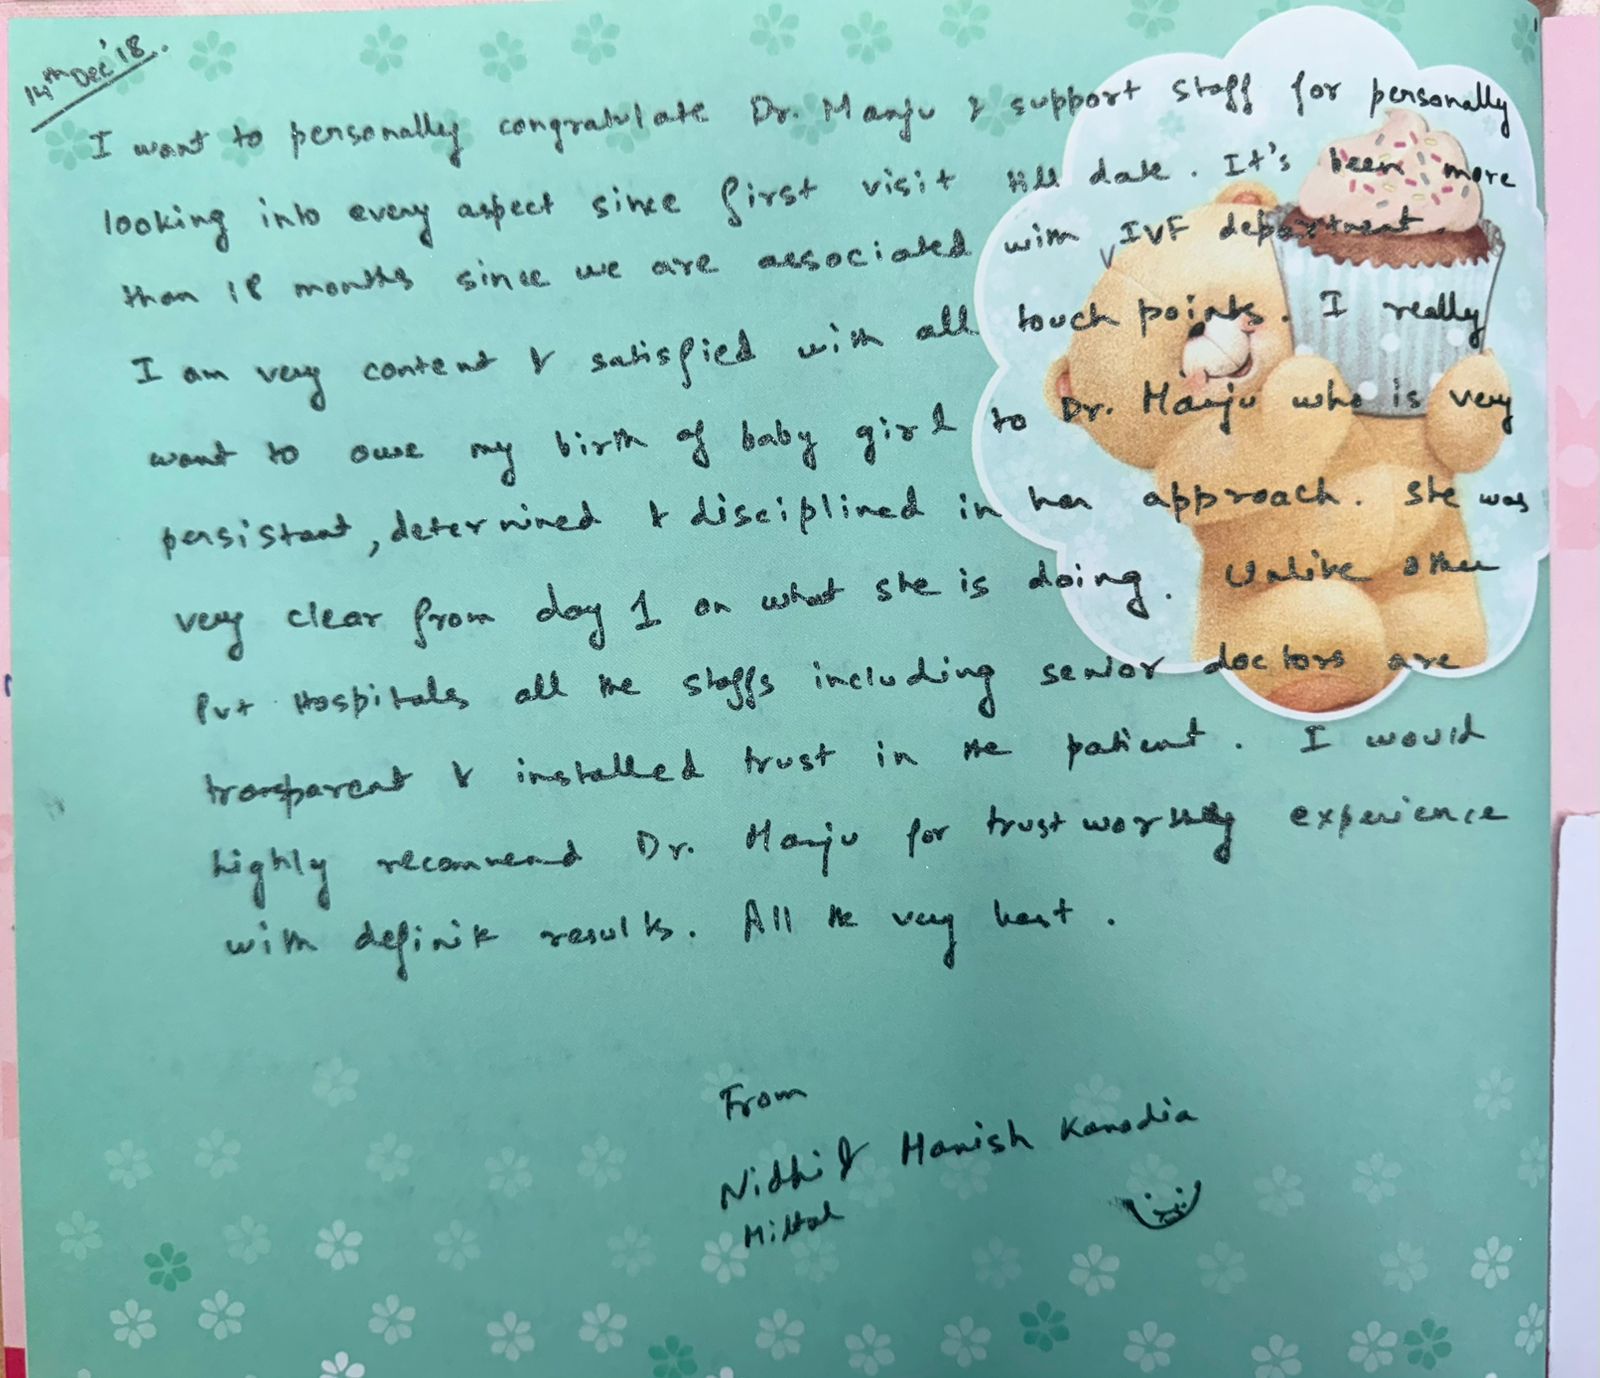 14th Dec'18.
I want to personally congratulate Dr. Manju & support staff for personally
looking into every aspect since first visit till date. It's been more
than 18 months since we are associated with IVF department.
I am very content & satisfied with all touch points. I really
want to owe my birth of baby girl to Dr. Manju who is very
persistant, determined & disciplined in her approach. She was
very clear from day 1 on what she is doing. Unlike other
Pvt Hospitals all the staffs including senior doctors are
transparent & installed trust in the patient. I would
highly recommend Dr. Manju for trust worthy experience
with definite results. All the very best.
From
Nidhi & Manish Kanodia
Mittal